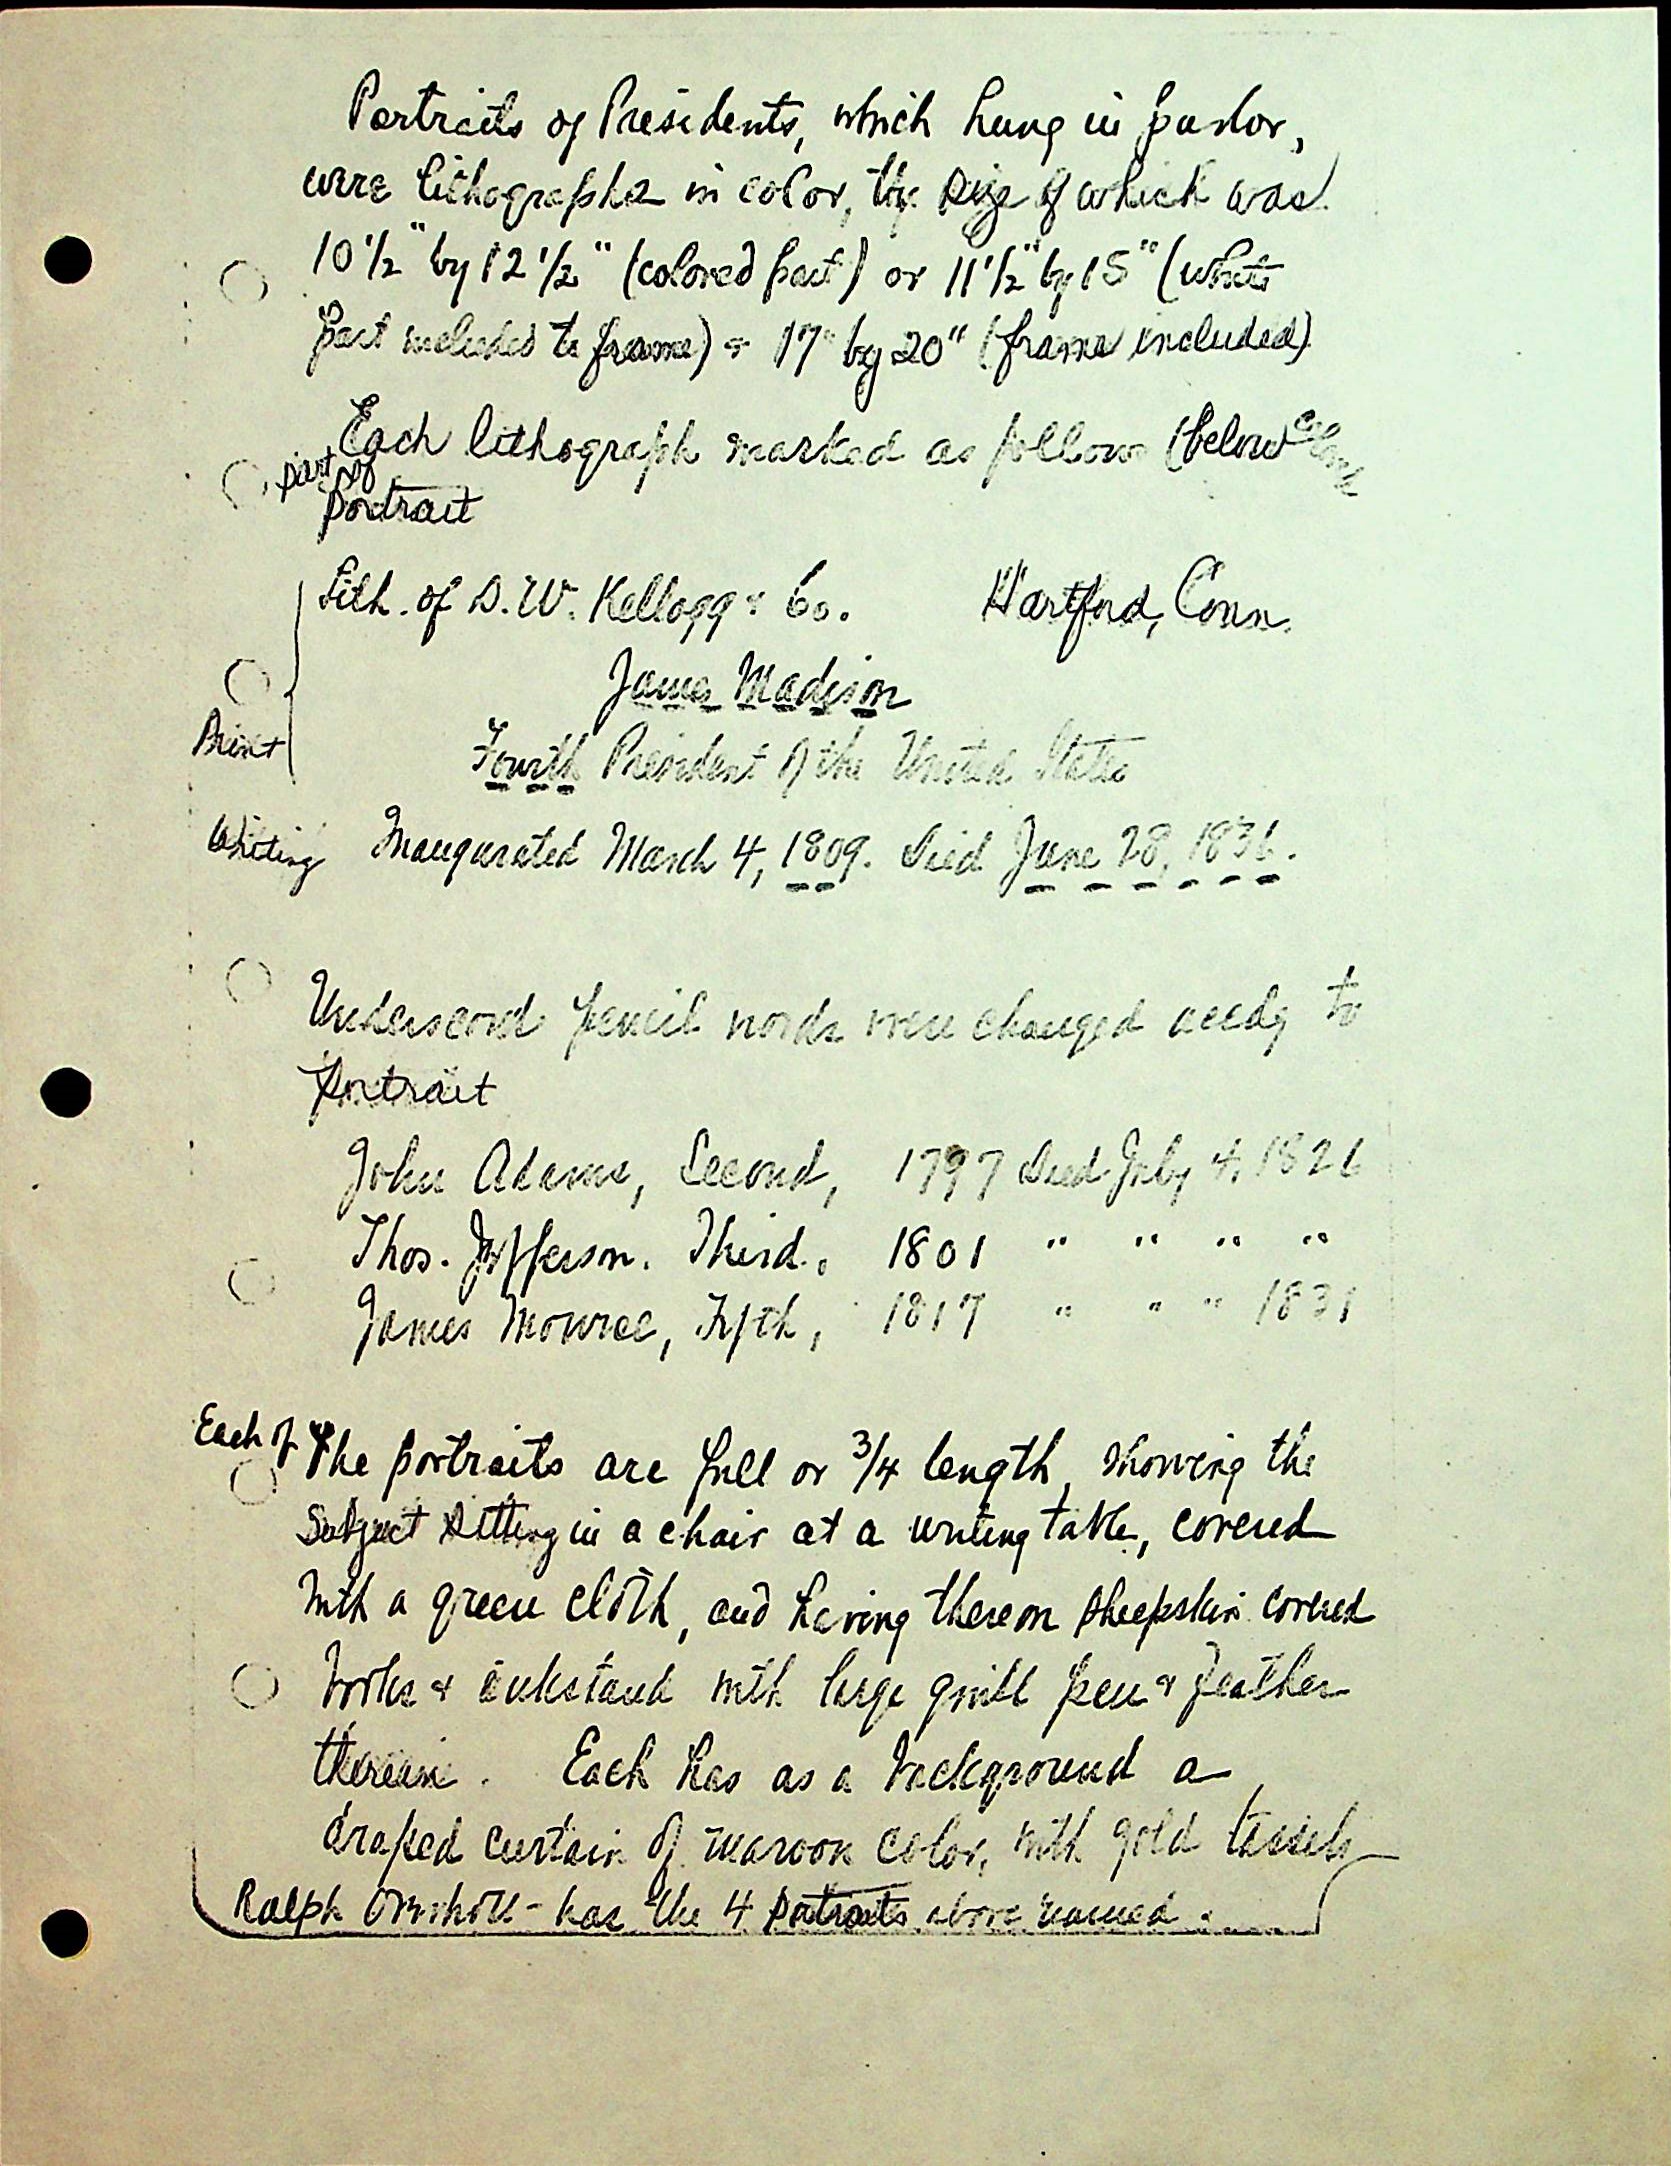 Portraits of Presidents, which hung in parlor,
were lithographs in color, the size of which was
10 1/2" by 12 1/2" (colored part) or 11 1/2" by 15" (white
part included to frame) & 17" by 20" (frame included)
Each lithograph marked as follows (below color
part of
portrait
Lith. of D. W. Kellogg & Co. Hartford, Conn.
James Madison
Print
Fourth President of the United States
Writing Inaugurated March 4, 1809. Died June 28, 1836.
Underscored pencil words were changed accdg to
portrait
John Adams, Second, 1797 Died July 4, 1826
Thos. Jefferson. Third, 1801 " " " "
James Monroe, Fifth, 1817 " " " 1831
Each of the portraits are full or 3/4 length, showing the
subject sitting in a chair at a writing table, covered
with a green cloth, and having thereon sheepskin covered
books & inkstand with large quill pen & feather
therein. Each has as a background a
draped curtain of maroon color, with gold tassels
Ralph - has the 4 portraits above named.